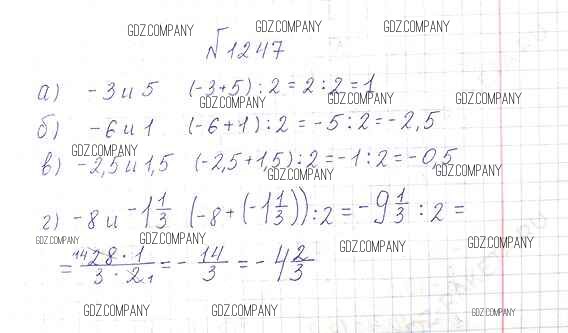 GDZ.COMPANY GDZ.COMPANY GDZ.COMPANY
№1247
а) -3 и 5 (-3+5):2=2:2=1
GDZ.COMPANY GDZ.COMPANY GDZ.COMPANY
б) -6 и 1 (-6+1):2=-5:2=-2,5
GDZ.COMPANY
в) -2,5 и 1,5 (-2,5+1,5):2=-1:2=-0,5
GDZ.COMPANY GDZ.COMPANY
г) -8 и -1 1/3 (-8+(-1 1/3)):2=-9 1/3:2=
GDZ.COMPANY GDZ.COMPANY GDZ.COMPANY GDZ.COMPANY
= 14 28·1/3·2 1 = -14/3 = -4 2/3
GDZ.COMPANY GDZ.COMPANY GDZ.COMPANY